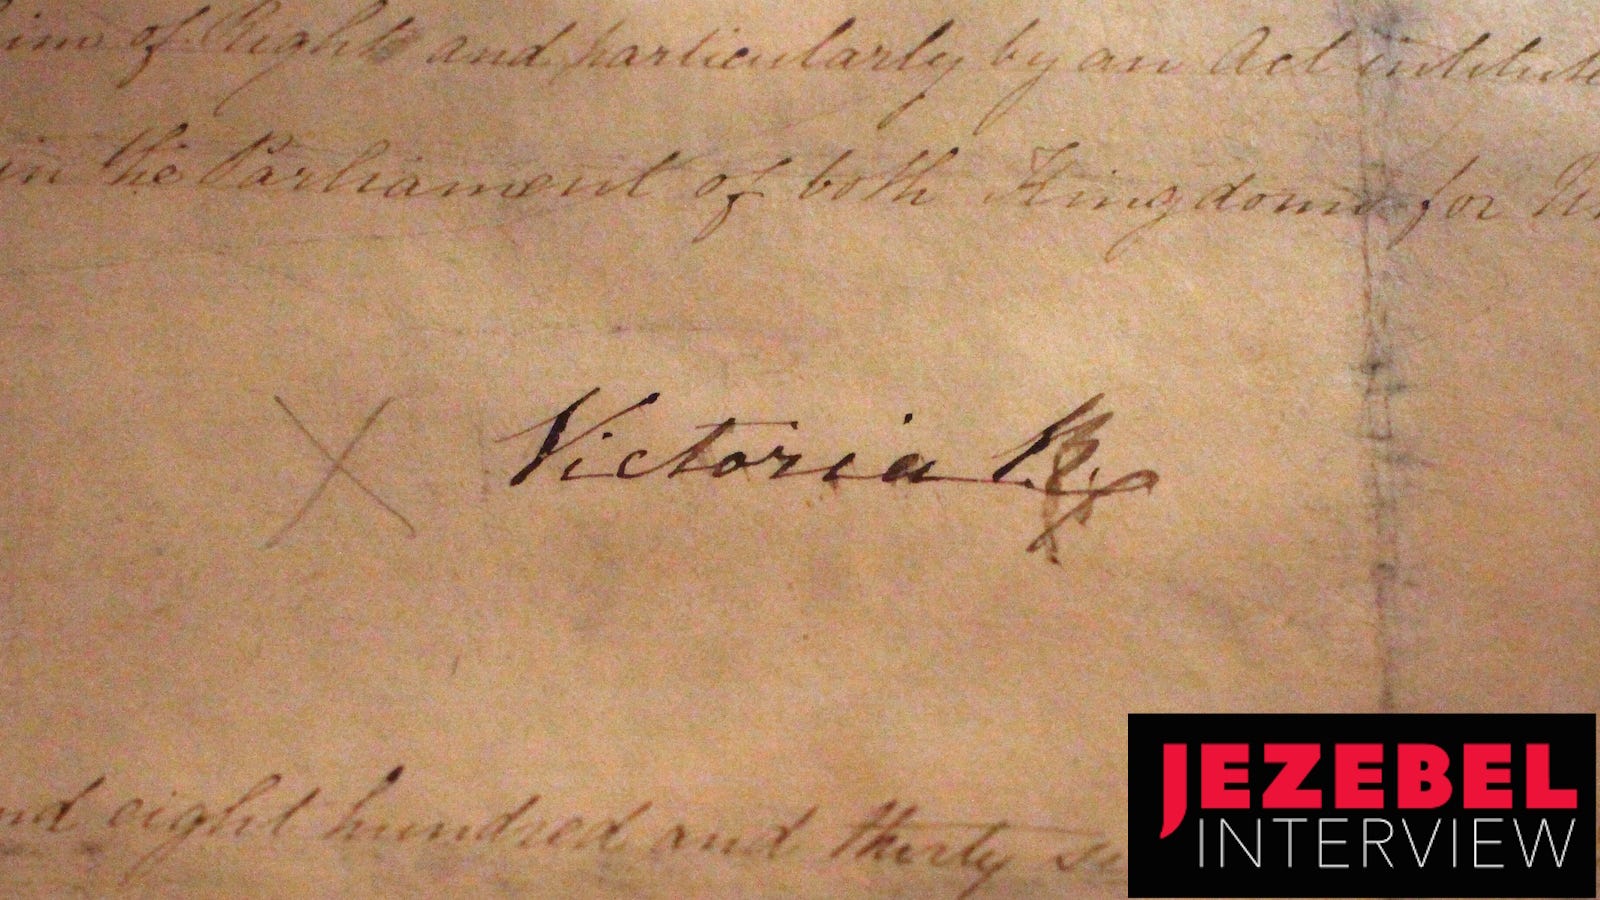 of Right and particularly by an Act
in the Parliament of both Kingdoms for
X Victoria R
eight hundred and thirty
JEZEBEL
INTERVIEW